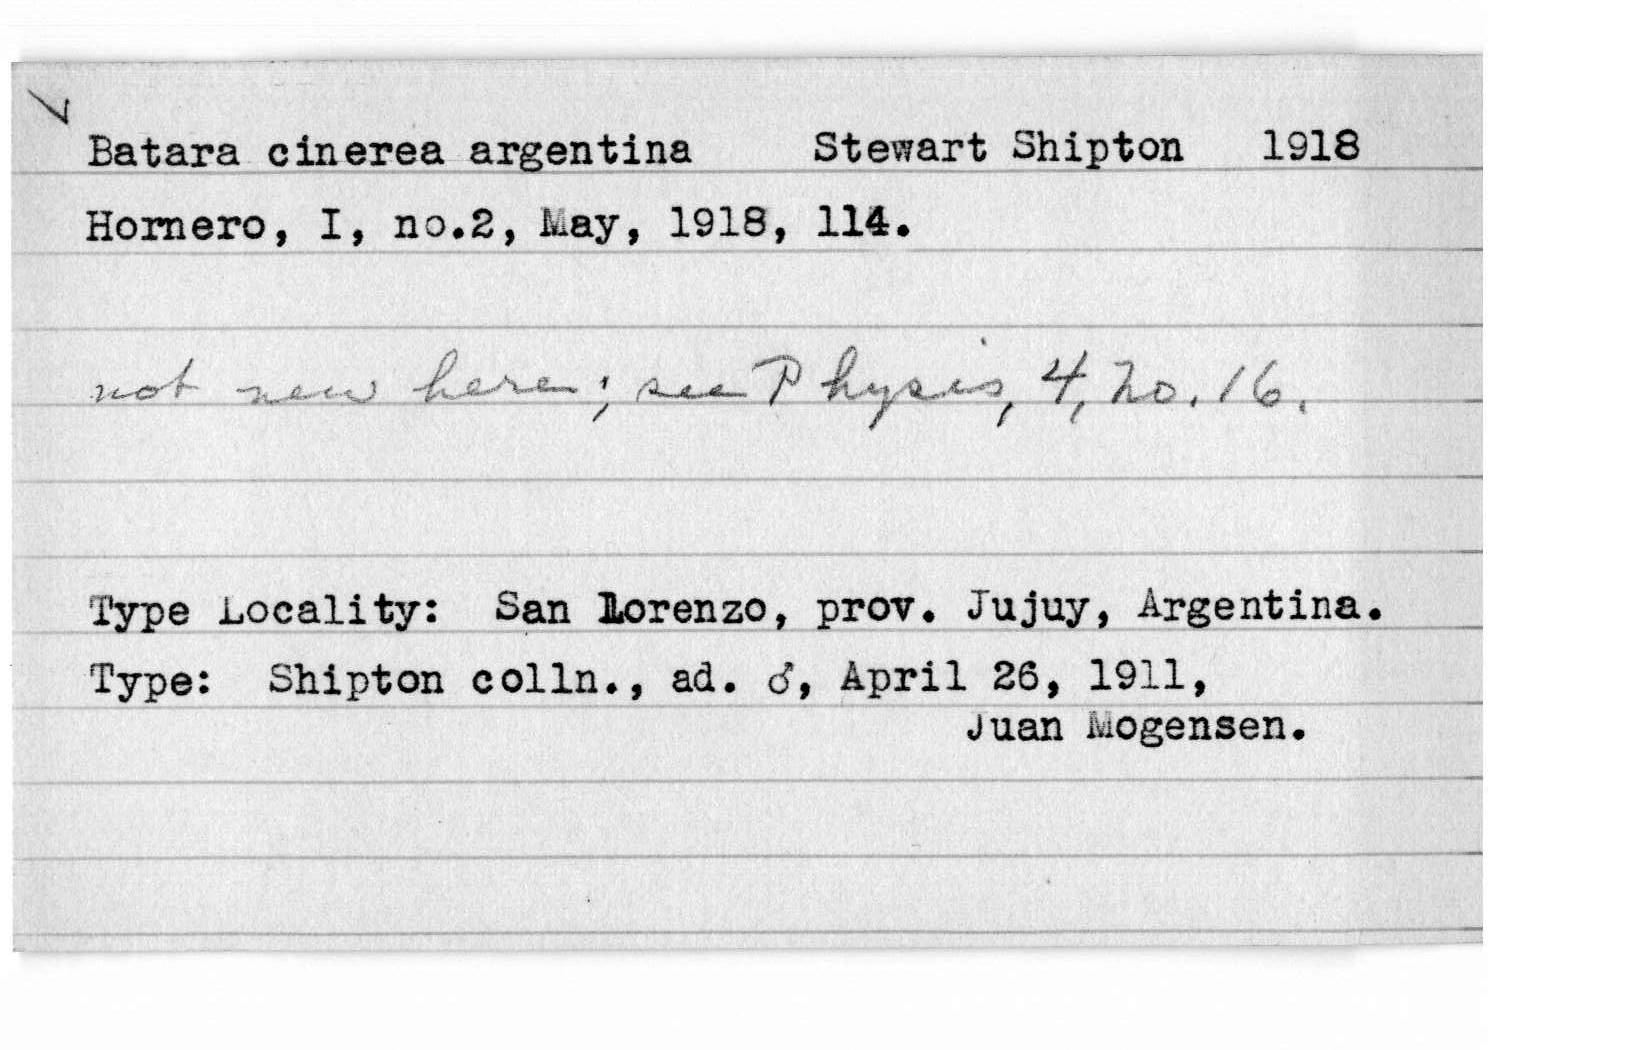 Batara cinerea argentina Stewart Shipton 1918
Hornero, I, no.2, May, 1918, 114.
not new here; see Physis, 4, no. 16.
Type Locality: San Lorenzo, prov. Jujuy, Argentina.
Type: Shipton colln., ad. ♂, April 26, 1911,
Juan Mogensen.